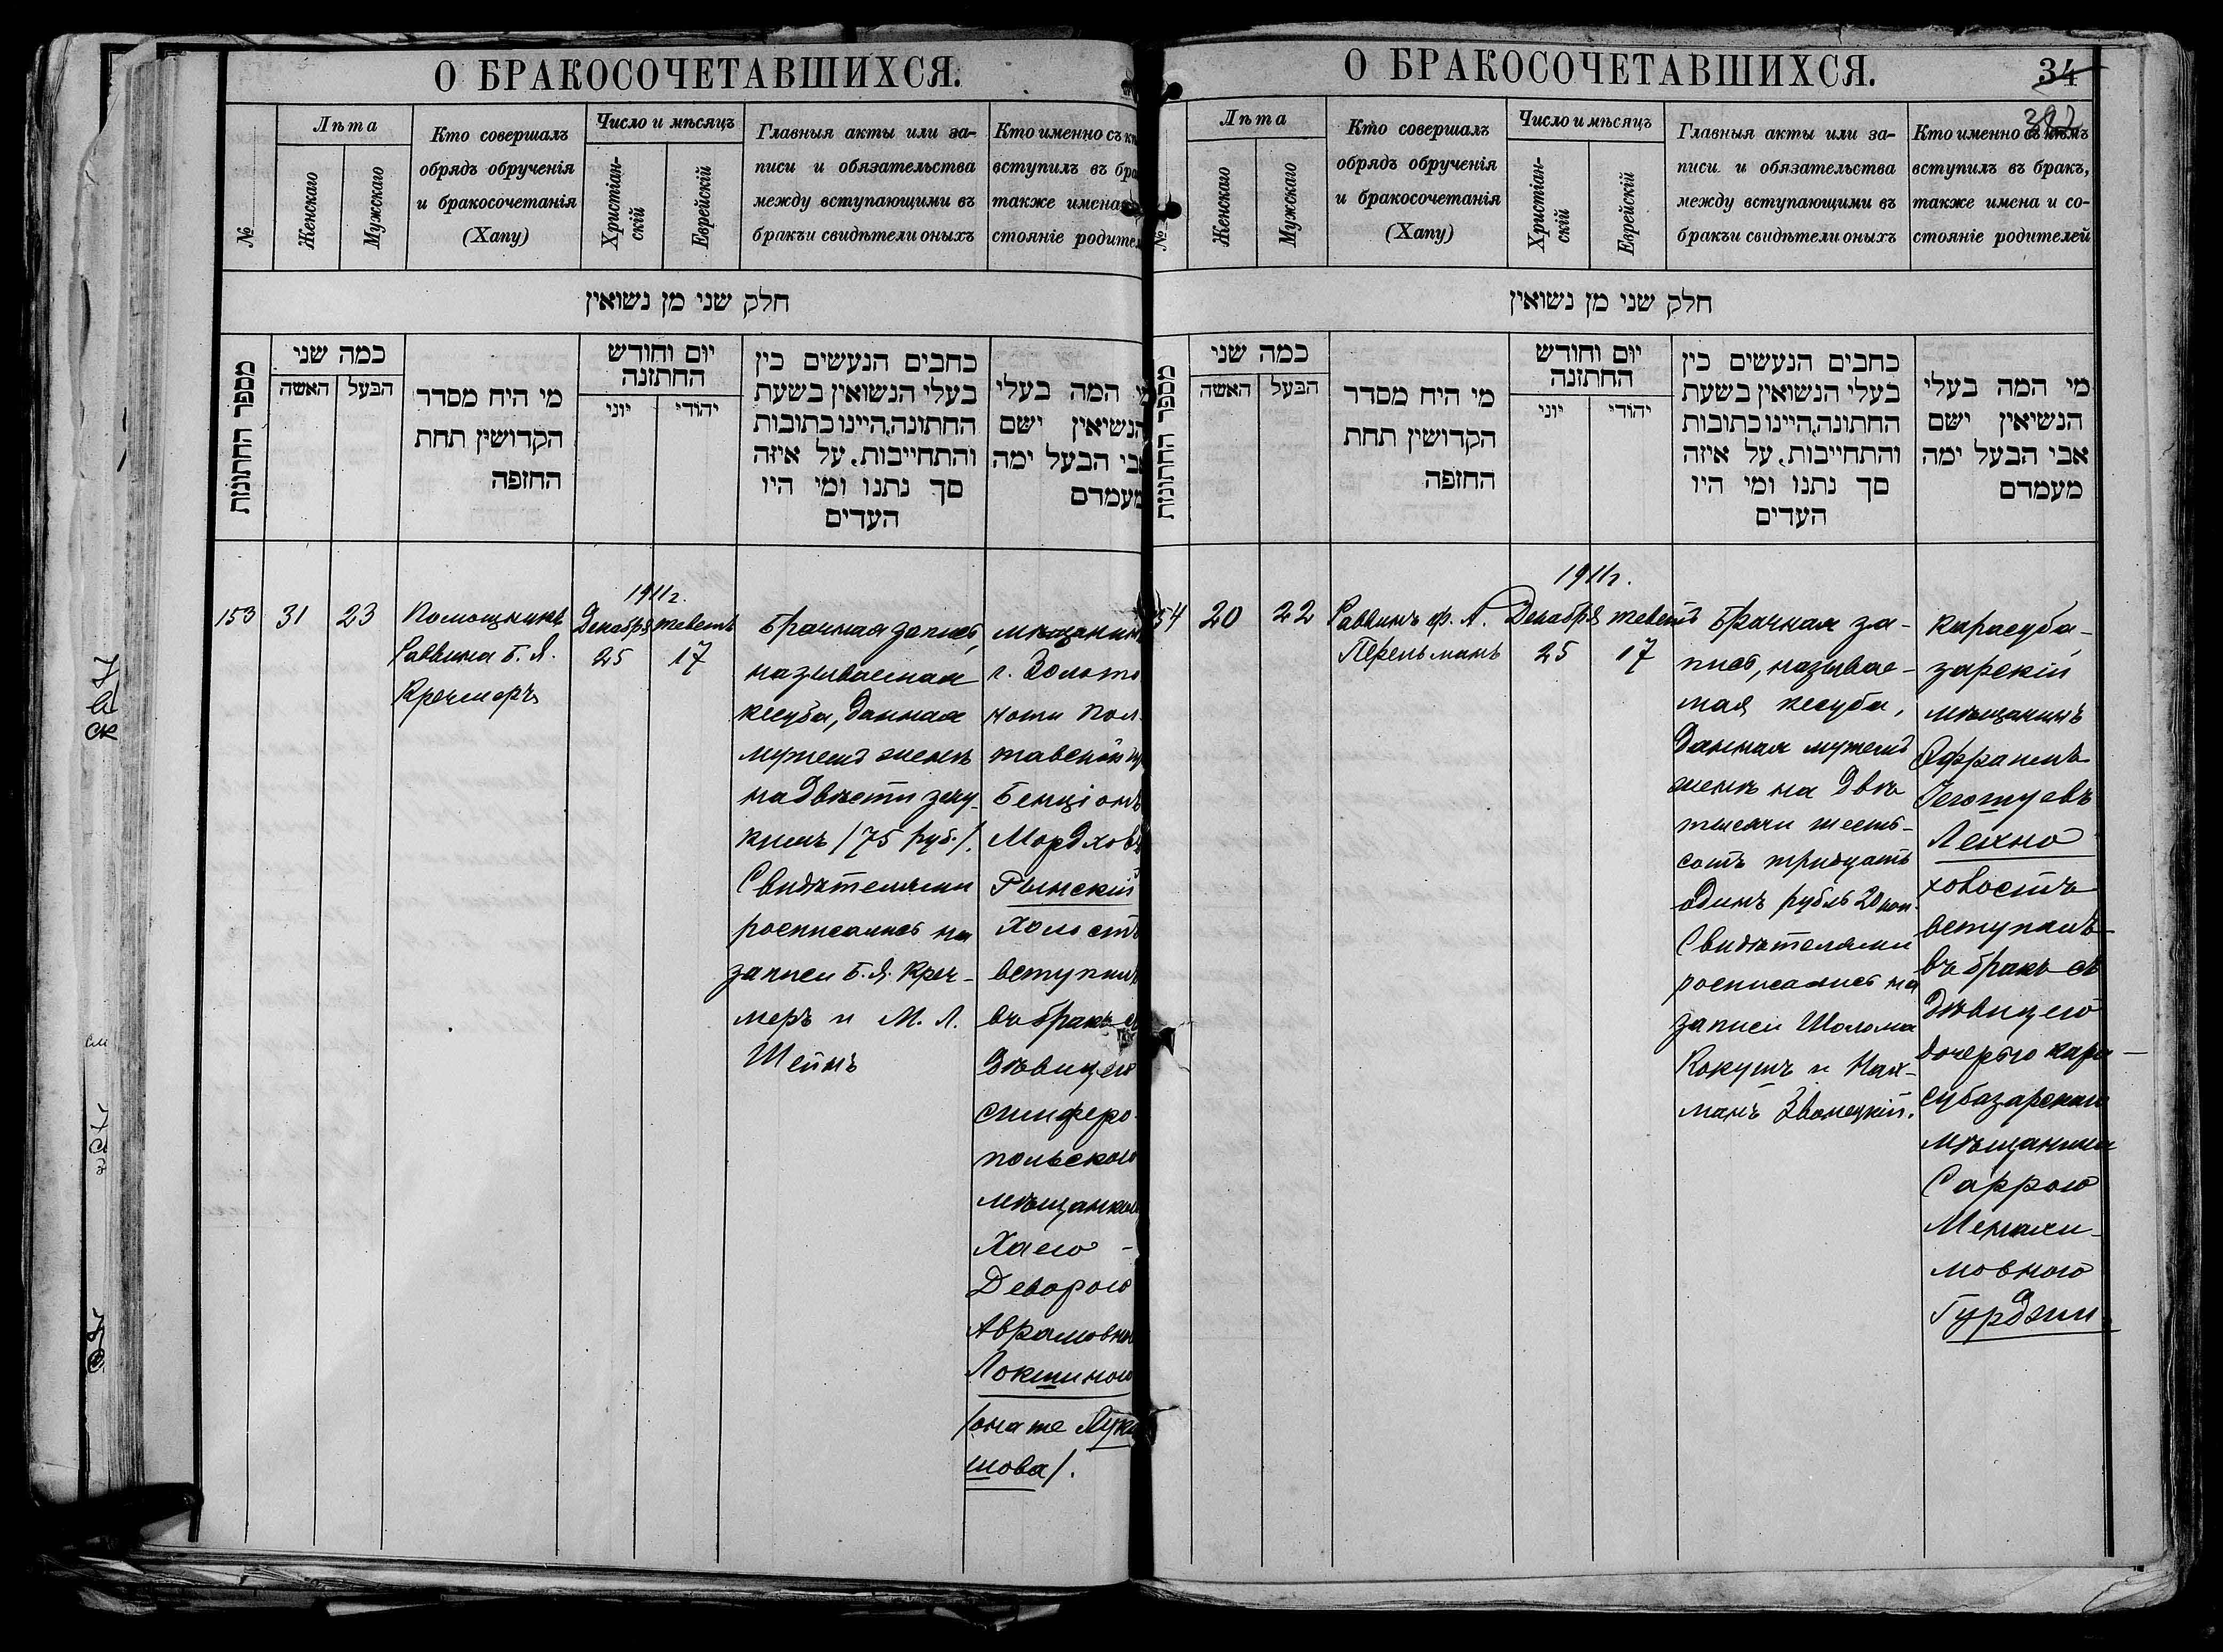 О БРАКОСОЧЕТАВШИХСЯ.
№
Лѣта
Женскаго
Мужскаго
Кто совершалъ
обрядъ обрученія
и бракосочетанія
(Хапу)
Число и мѣсяцъ
Христіан-
скій
Еврейскій
Главныя акты или за-
писи и обязательства
между вступающими въ
бракъи свидѣтели оныхъ
Кто именно съ
вступилъ въ
также имена
стояніе
חלק שני מן נשואין
מספר החתונות
כמה שני
האשה
הבעל
מי היח מסדר
הקדושין תחת
החופה
יום וחודש
החתונה
יוני
יהודי
כחבים הנעשים כין
בעלי הנשואין בשעת
החתונה,היינו כתובות
והתחייבות, על איזה
סך נתנו ומי היו
העדים
המה בעלי
הנשיאין ישם
אבי הבעל ימה
מעמדם
153
31
23
Помощникъ
Раввина Б. Я.
Кречмеръ
1911 г.
Декабря
25
теветъ
17
Брачная запись,
называемая
ксуба, данная
мужемъ женѣ
на двѣсти зеку-
кимъ /75 руб./.
Свидѣтелями
росписались на
записи Б. Я. Креч-
меръ и М. Л.
Шейнъ
мѣщанинъ
г. Золото
ноши Пол-
тавской
Бенціонъ
Мордхов
Рынскій
холостъ
вступилъ
въ бракъ съ
дѣвицею
симферо-
польскою
мѣщанкою
Хаею -
Деворою
Аврамовн
Локшиною
/она же Лук
шова/.
О БРАКОСОЧЕТАВШИХСЯ.
34
382
№
Лѣта
Женскаго
Мужскаго
Кто совершалъ
обрядъ обрученія
и бракосочетанія
(Хапу)
Число и мѣсяцъ
Христіан-
скій
Еврейскій
Главныя акты или за-
писи и обязательства
между вступающими въ
бракъи свидѣтели оныхъ
Кто именно съ кѣмъ
вступилъ въ бракъ,
также имена и со-
стояніе родителей
חלק שני מן נשואין
מספר החתונות
כמה שני
האשה
הבעל
מי היח מסדר
הקדושין תחת
החופה
יום וחודש
החתונה
יוני
יהודי
כחבים הנעשים כין
בעלי הנשואין בשעת
החתונה,היינו כתובות
והתחייבות, על איזה
סך נתנו ומי היו
העדים
מי המה בעלי
הנשיאין ישם
אבי הבעל ימה
מעמדם
54
20
22
Раввинъ Ф. А.
Перельманъ
1911 г.
Декабря
25
теветъ
17
Брачная за-
пись, называе-
мая ксуба,
данная мужемъ
женѣ на двѣ
тысячи шесть-
сотъ тридцать
одинъ рубль 20 коп.
Свидѣтелями
росписались на
записи Шолома
Кокушъ и Нах-
манъ Звонецкій.
Карасуба-
зарскій
мѣщанинъ
Эфраимъ
Іегошуевъ
Лехно
холостъ
вступилъ
въ бракъ съ
дѣвицею
дочерью кара-
субазарскаго
мѣщанина
Саррою
Менахи-
мовною
Гурджи